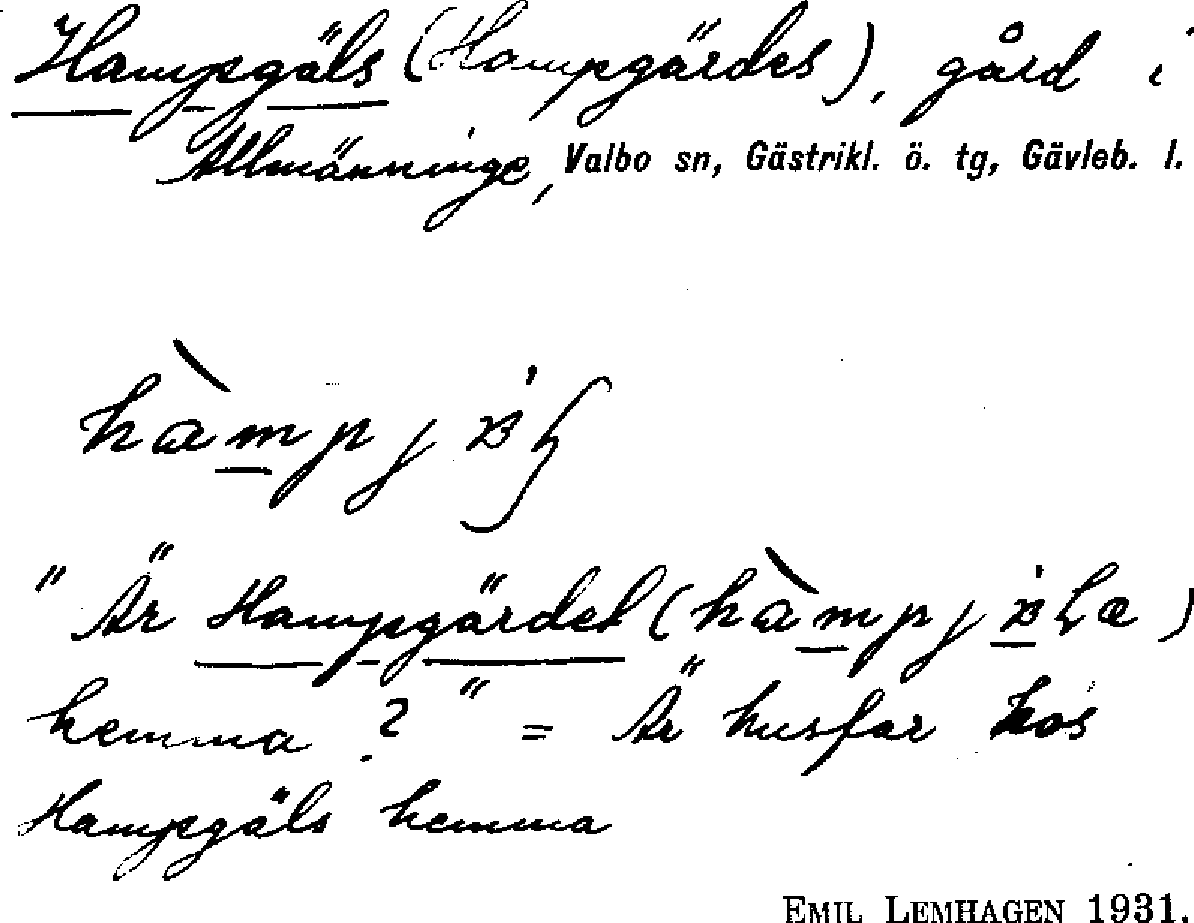 Hampgäls (Hampgärdes), gård i
Allmänninge, Valbo sn, Gästrikl. ö. tg, Gävleb. l.
"Är Hampgärdet (
hemma?" = Är husfar hos
Hampgäls hemma
EMIL LEMHAGEN 1931.